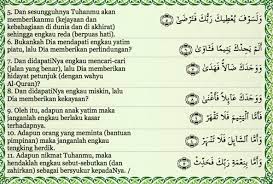 5. Dan sesungguhnya Tuhanmu akan
memberikanmu (kejayaan dan
kebahagiaan di dunia dan di akhirat)
sehingga engkau reda (berpuas hati).
وَلَسَوْفَ يُعْطِيكَ رَبُّكَ فَتَرْضَىٰ ٥
6. Bukankah Dia mendapati engkau yatim
piatu, lalu Dia memberikan perlindungan?
أَلَمْ يَجِدْكَ يَتِيمًا فَـَٔاوَىٰ ٦
7. Dan didapatiNya engkau mencari-cari
(jalan yang benar), lalu Dia memberikan
hidayat petunjuk (dengan wahyu
Al-Quran)?
وَوَجَدَكَ ضَآلًّا فَهَدَىٰ ٧
8. Dan didapatiNya engkau miskin, lalu
Dia memberikan kekayaan?
وَوَجَدَكَ عَآئِلًا فَأَغْنَىٰ ٨
9. Oleh itu, adapun anak yatim maka
janganlah engkau berlaku kasar
terhadapnya.
فَأَمَّا ٱلْيَتِيمَ فَلَا تَقْهَرْ ٩
10. Adapun orang yang meminta (bantuan
pimpinan) maka janganlah engkau
tengking herdik.
وَأَمَّا ٱلسَّآئِلَ فَلَا تَنْهَرْ ١٠
11. Adapun nikmat Tuhanmu, maka
hendaklah engkau sebut-sebutkan (dan
zahirkan) sebagai bersyukur kepadaNya. /
وَأَمَّا بِنِعْمَةِ رَبِّكَ فَحَدِّثْ ١١